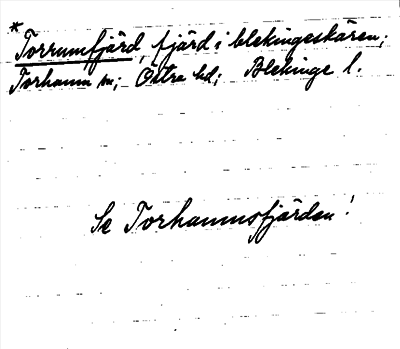 *
Torrumfjärd, fjärd i blekingeskären;
Torhamn sn; Östra hd; Blekinge l.
Se Torhamnsfjärden!